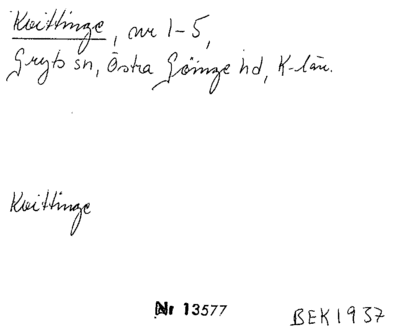 Kvittinge, nr 1-5,
Gryts sn, Östra Göinge hd, K-län.
Kvittinge
Nr 13577
BEK 1937